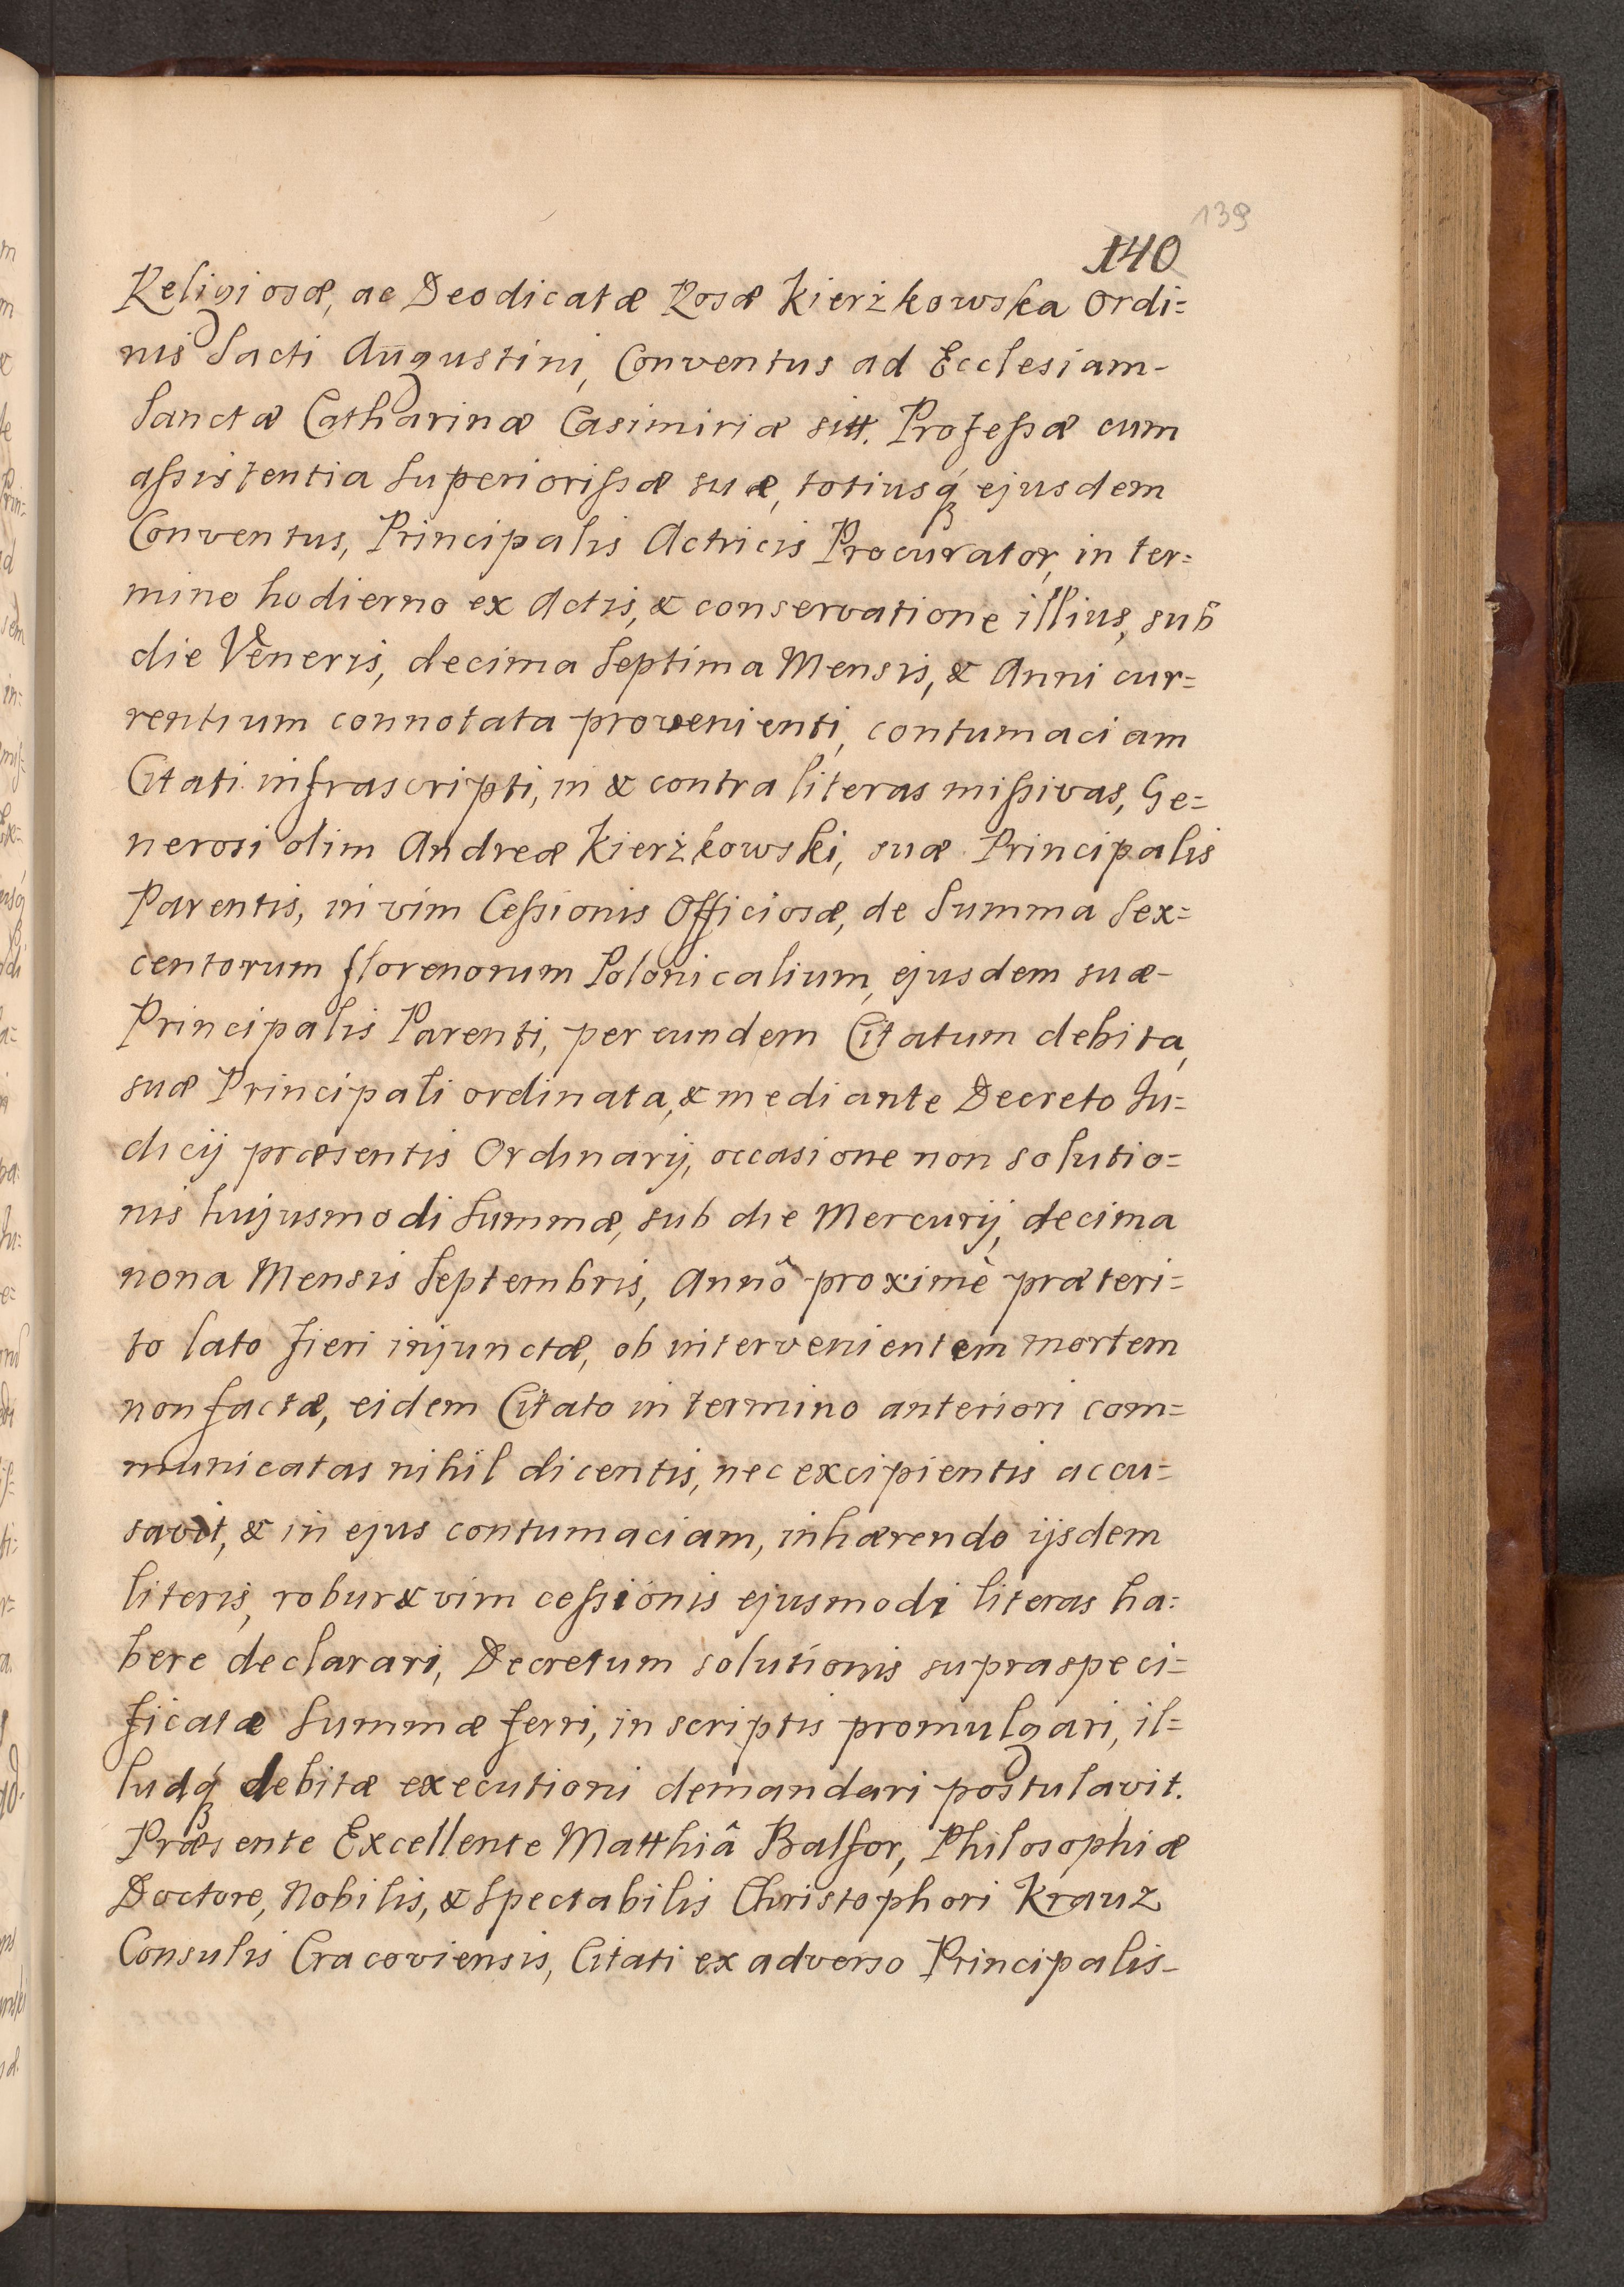 139
140
Religiosæ, ac Deodicatæ Rosæ Kierżkowska Ordi=
nis Sacti Augustini, Conventus ad Ecclesiam-
Sanctæ Catharinæ Casimiriæ sitt. Profeßæ cum
aßistentia Superiorißæ suæ, totiusq́ ejusdem
Conventus, Principalis Actricis Procurator, in ter=
mino hodierno ex Actis, & conservatione illius, sub
die Veneris, decima Septima Mensis, & Anni cur=
rentium connotata provenienti, contumaciam
Citati infrascripti, in & contra literas mißivas, Ge=
nerosi olim Andreæ Kierżkowski, suæ Principalis
Parentis, in vim Ceßionis Officiosæ, de Summa Sex=
centorum florenorum Polonicalium, ejusdem suæ-
Principalis Parenti, per eundem Citatum debita,
suæ Principali ordinata, & mediante Decreto Ju=
dicij præsentis Ordinarij, occasione non solutio=
nis hujusmodi Summæ, sub die Mercurij, decima
nona Mensis Septembris, Annô proximè præteri=
to lato fieri injunctæ, ob intervenientem mortem
non factæ, eidem Citato in termino anteriori com=
municatas nihil dicentis, nec excipientis accu=
savit, & in ejus contumaciam, inhærendo ijsdem
literis, robur & vim ceßionis ejusmodi literas ha=
bere declarari, Decretum solutionis supraspeci=
ficatæ Summæ ferri, in scriptis promulgari, il=
ludq́ debitæ executioni demandari postulavit.
Præsente Excellente Matthiâ Balsor, Philosophiæ
Doctore, Nobilis, & Spectabilis Christophori Krauz
Consulis Cracoviensis, Citati ex adverso Principalis-